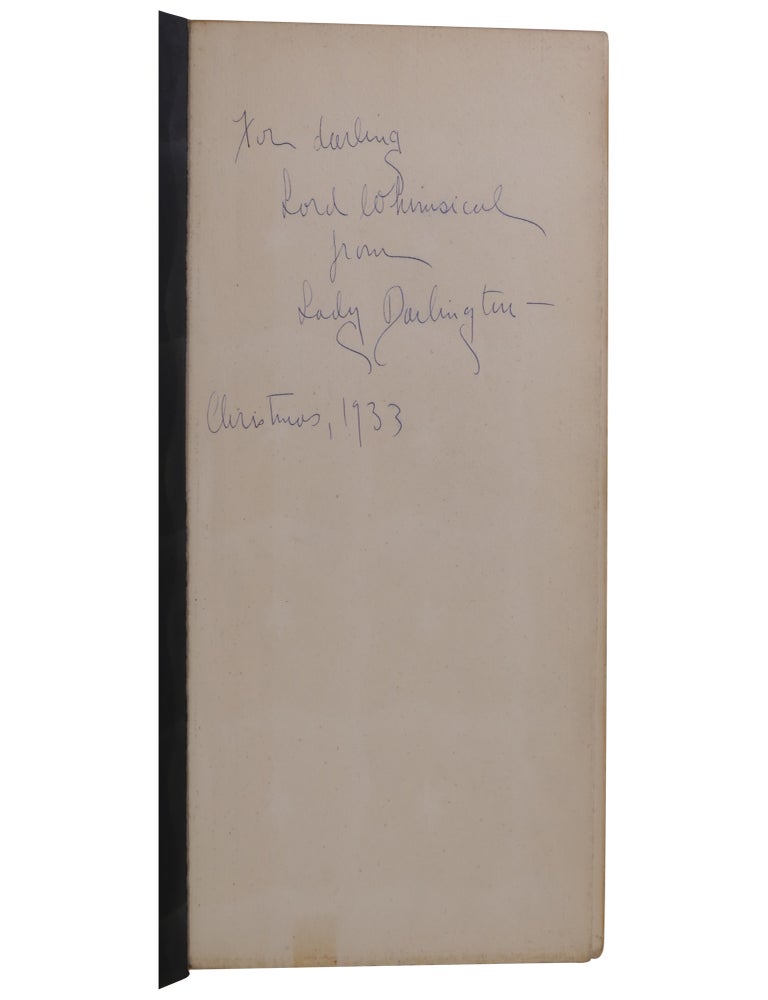 For darling
Lord Whimsical
from
Lady Darlington —
Christmas, 1933